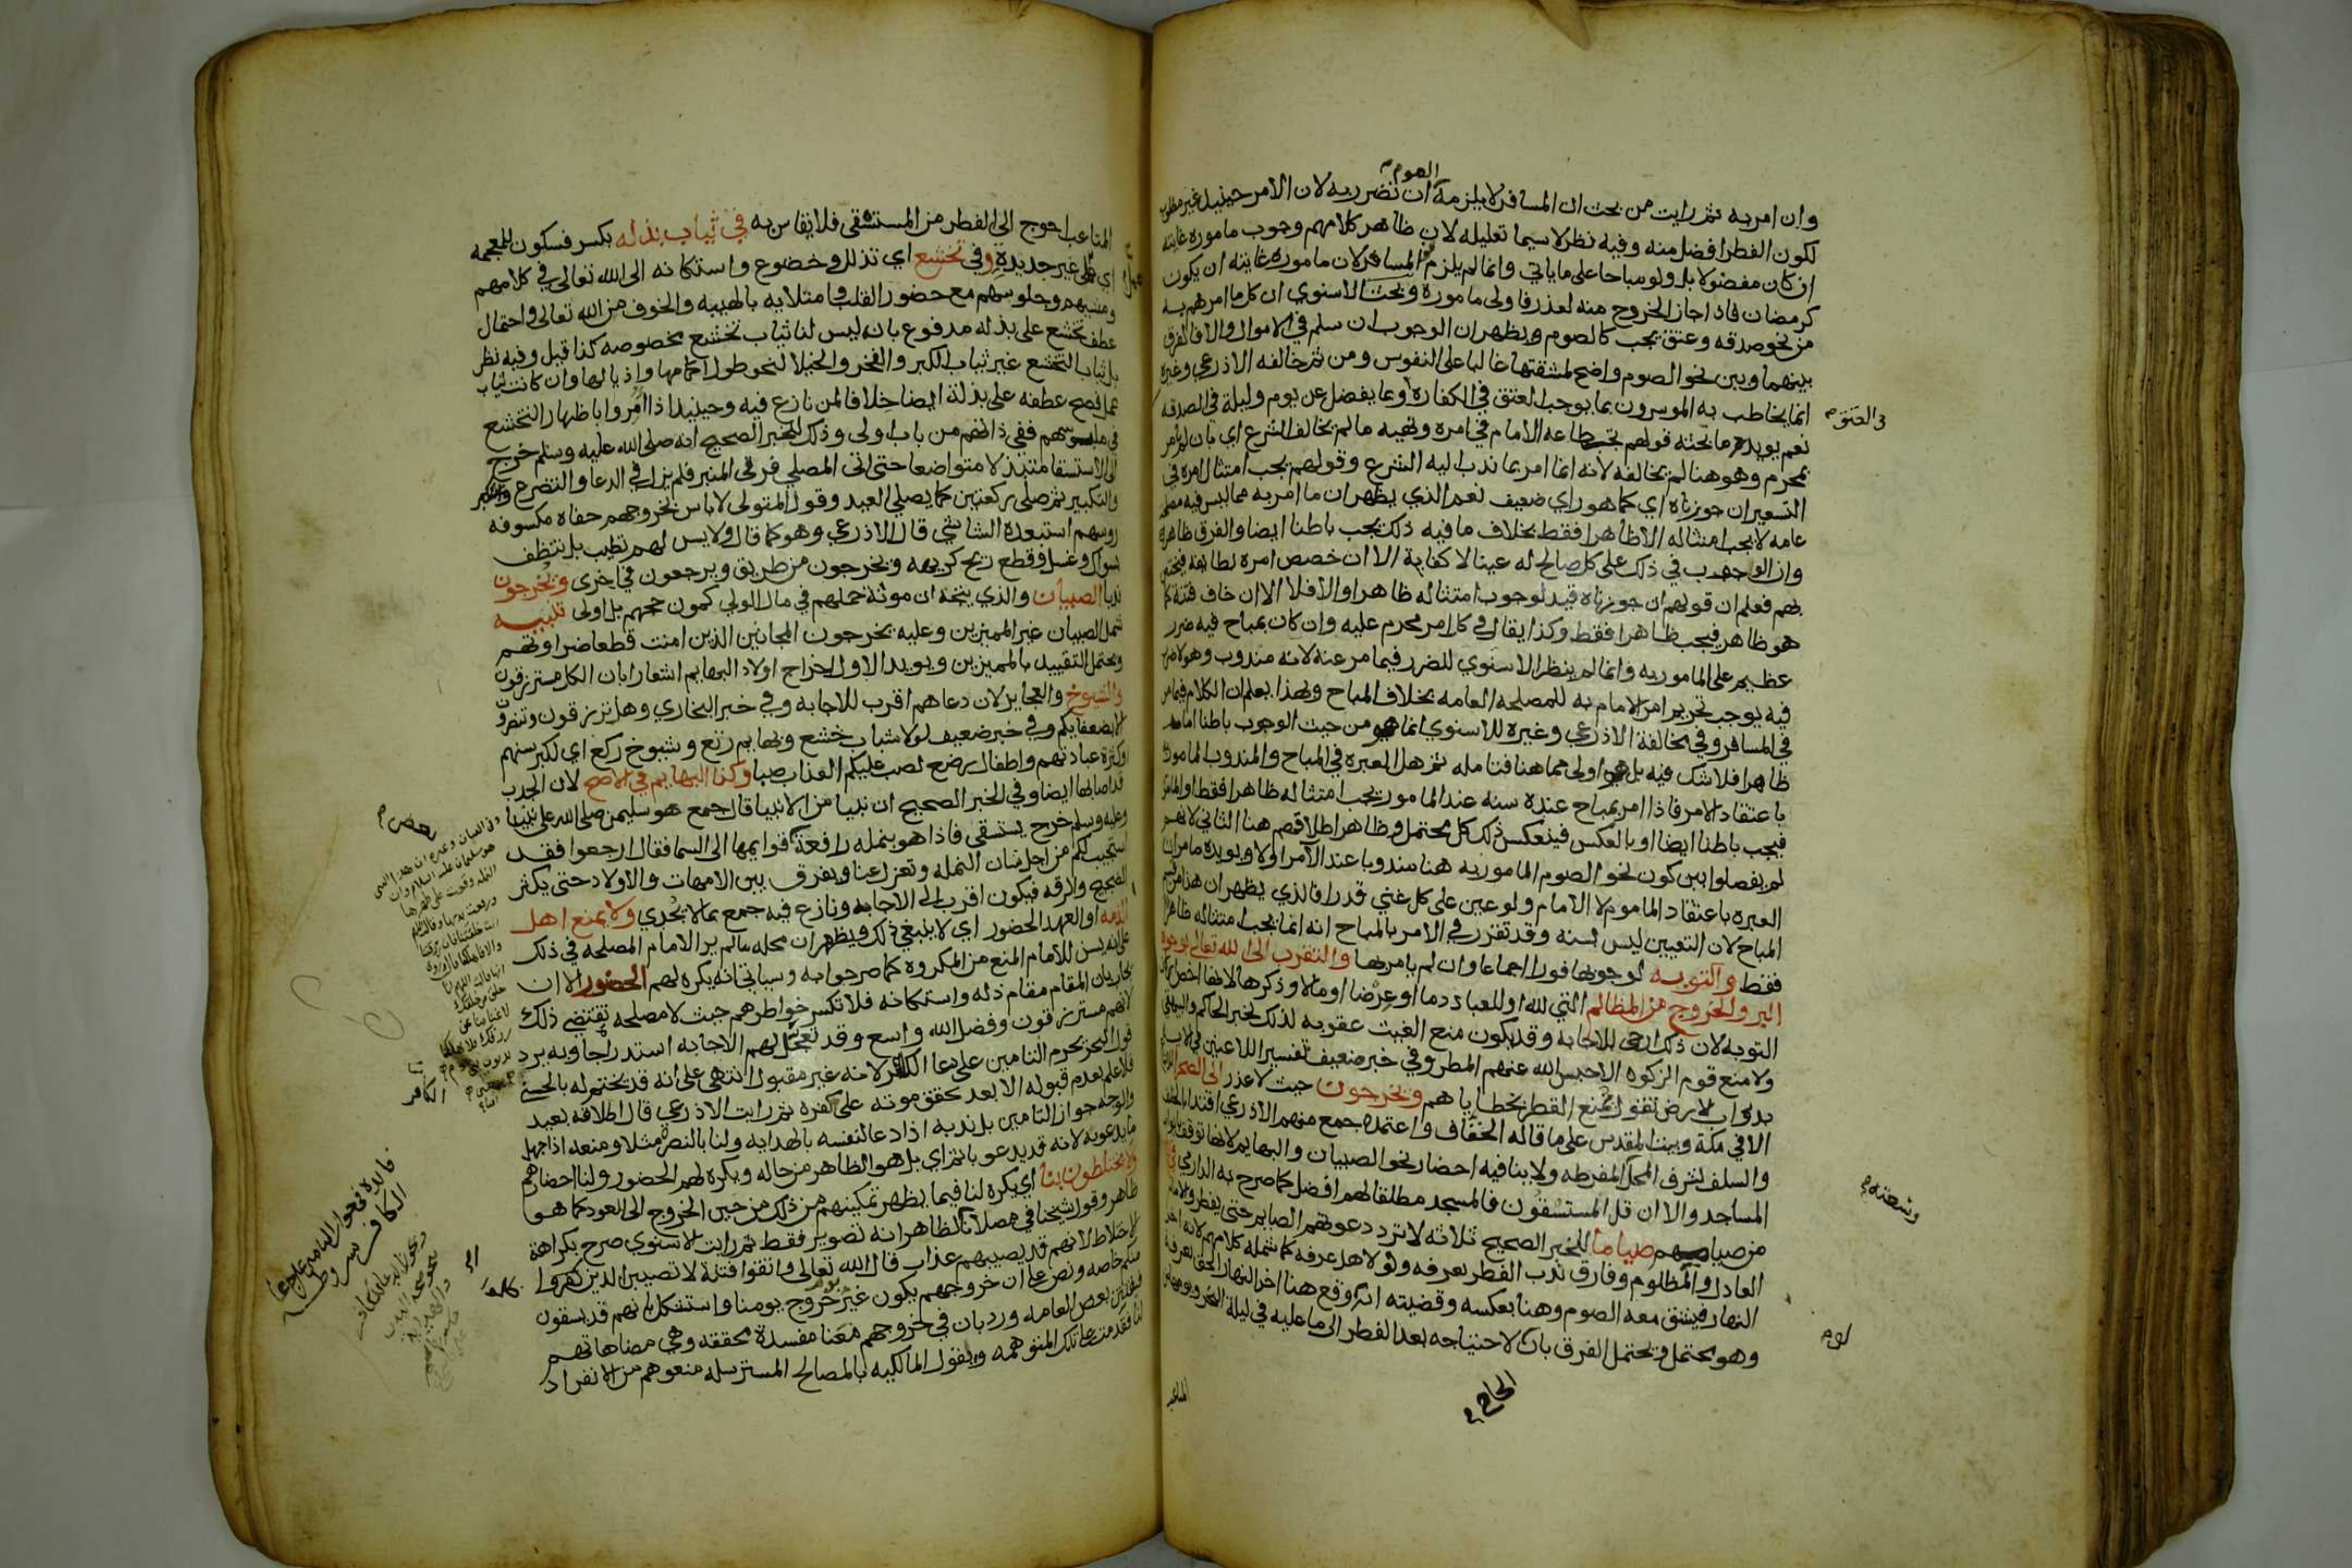 الصوم
وان امر به ثم رايت من بحث ان المسافر لا يلزمه ان تضرر به لان الامر حينيذ غير مطلوب
لكون الفطر افضل منه وفيه نظر لا سيما تعليله لان ظاهر كلامهم وجوب ماموره غايته
ان كان مفضولا بل ولو مباحا على ما ياتي وانما لم يلزم المسافر لان ماموره غايته ان يكون
كرمضان فاذا جاز الخروج منه لعذر فاولى ماموره وبحث الاسنوي ان كل ما امرهم به
من نحو صدقه وعتق يجب كالصوم ويظهر ان الوجوب ان سلم في الاموال والا فالفرق
بينهما وبين نحو الصوم واضح لمشقتها غالبا على النفوس ومن ثم خالفه الاذرعي وغيره
انما يخاطب به الموسرون بما يوجب العتق في الكفاره وبما يفضل عن يوم وليلة في الصدقه
نعم يويد ما بحثه قولهم تجب طاعه الامام في امره ونهيه ما لم يخالف الشرع اي بان لم يامر
بمحرم وهو هنا لم يخالفه لانه انما امر بما ندب اليه الشرع وقولهم يجب امتثال امره في
التسعير ان جوزناه اي كما هو راي ضعيف نعم الذي يظهر ان ما امر به مما ليس فيه مصلحه
عامه لا يجب امتثاله الا ظاهرا فقط بخلاف ما فيه ذلك يجب باطنا ايضا والفرق ظاهر
وان الوجوب في ذلك على كل صالح له عينا لا كفاية الا ان خصص امره بطايفه فيختص
بهم فعلم ان قولهم ان جوزناه قيد لوجوب امتثاله ظاهرا والا فلا الا ان خاف فتنة كما
هو ظاهر فيجب ظاهرا فقط وكذا يقال في كل امر محرم عليه وان كان بمباح فيه ضرر
عظيم على المامور به وانما لم ينظر الاسنوي للضرر فيما مر عنه لانه مندوب وهو
فيه يوجب تحريم امر الامام به للمصلحه العامه بخلاف المباح وبهذا يعلم ان الكلام فيما مر
في المسافر وفي مخالفة الاذرعي وغيره للاسنوي انما هو من حيث الوجوب باطنا اما
ظاهرا فلا شك فيه بل هو اولى مما هنا فتامله ثم هل العبره في المباح والمندوب المامور
باعتقاد الامر فاذا امر بمباح عنده سنه عند المامور يجب امتثاله ظاهرا فقط او المامور
فيجب باطنا ايضا او بالعكس فينعكس ذلك كل محتمل وظاهر اطلاقهم هنا الثاني لانهم
لم يفصلوا بين كون نحو الصوم المامور به هنا مندوبا عند الآمر اولا ويويده ما مر ان
العبره باعتقاد الماموم لا الامام ولو عين على كل غني قدرا فالذي يظهر ان هذا من قسم
المباح لان التعيين ليس بسنه وقد تقرر في الامر بالمباح انه انما يجب امتثاله ظاهرا
فقط والتوبه لوجوبها فورا اجماعا وان لم يامر بها والتقرب الى الله تعالى بوجوه
البر والخروج من المظالم التي لله او للعباد دما او عرضا او مالا وذكرها لانها اخص
التوبه لان ذلك ارجى للاجابه وقد يكون منع الغيث عقوبه لذلك لخبر الحاكم والبيهقي
ولا منع قوم الزكوه الا حبس الله عنهم المطر وفي خبر ضعيف تفسير اللاعنين في الايه
بدواب الارض تقول تمنع القطر بخطاياهم ويخرجون حيث لا عذر الى الصحرا
الا في مكة وبيت المقدس على ما قاله الخفاف واعتمده جمع منهم الاذرعي اقتدا بالخلف
والسلف لشرف المحل المفرطه ولا ينافيه احضار نحو الصبيان والبهايم لانها توقف بابواب
المساجد والا ان قل المستسقون فالمسجد مطلقا لهم افضل كما صرح به الدارمي في
من صيامهم صياما للخبر الصحيح ثلاثه لا ترد دعوتهم الصايم حتى يفطر والامام
العادل والمظلوم وفارق ندب الفطر بعرفه ولو لاهل عرفه كما شمله كلامهم لانه اخر
النهار فيشق معه الصوم وهنا بعكسه وقضيته انه لو وقع هنا اخر النهار الحق بعرفة
وهو محتمل ويحتمل الفرق بان لاحتياجه بعد الفطر الى ما عليه في ليلة النحر ويومه
في العتق
وسعته
لوم
الحاج
المتاعب
المتاعب احوج الى الفطر من المستسقي فلا يقاس به في ثياب بذله بكسر فسكون للمعجمه
اي غير جديدة وفي تخشع اي تذلل وخضوع واستكانه الى الله تعالى في كلامهم
ومشيهم وجلوسهم مع حضور القلب وامتلايه بالهيبه والخوف من الله تعالى واحتمال
عطف تخشع على بذله مدفوع بانه ليس لنا ثياب تخشع بخصوصه كذا قيل وفيه نظر
بل ثياب التخشع غير ثياب الكبر والفخر والخيلا لنحو طول اكمامها واذيالها وان كانت ثياب
عمل فصح عطفه على بذلة ايضا خلافا لمن نازع فيه وحينيذ اذا امروا باظهار التخشع
في ملبوسهم ففي ذاتهم من باب اولى وذلك للخبر الصحيح انه صلى الله عليه وسلم خرج
الى الاستسقا متبذلا متواضعا حتى اتى المصلي فرقى المنبر فلم يزل في الدعا والتضرع
والتكبير ثم صلى ركعتين كما يصلي العيد وقول المتولي لا باس بخروجهم حفاه مكسوفه
روسهم استبعده الشاشي قال الاذرعي وهو كما قال ولا يسن لهم تطيب بل تنظف
بسواك وغسل وقطع ريح كريهه ويخرجون من طريق ويرجعون في اخرى ويخرجون
ندبا الصبيان والذي يتجه ان مونة حملهم في مال الولي كمون حجهم بل اولى تنبيه
شمل الصبيان غير المميزين وعليه يخرجون المجانين الذين امنت قطعا ضراوتهم
ويحتمل التقييد بالمميزين ويويد الاول اخراج اولاد البهايم اشعارا بان الكل مسترزقون
والشيوخ والعجايز لان دعاهم اقرب للاجابه وفي خبر البخاري وهل ترزقون وتنصرون
الا بضعفايكم وفي خبر ضعيف لولا شباب خشع وبهايم رتع وشيوخ ركع اي لكبر سنهم
او كثرة عبادتهم واطفال رضع لصب عليكم العذاب صبا وكذا البهايم في الاصح لان الجدب
قد اصابها ايضا وفي الخبر الصحيح ان نبيا من الانبيا قال جمع هو سليمن صلى الله على نبينا
وعليه وسلم خرج يستسقي فاذا هو بنمله رافعة قوايمها الى السما فقال ارجعوا فقد
استجيب لكم من اجل شان النمله وتعزل عنا ويفرق بين الامهات والاولاد حتى يكثر
الضجيج والرقه فيكون اقرب الى الاجابه ونازع فيه جمع بما لا يجدي ولا يمنع اهل
الذمه او العهد الحضور اي لا ينبغي ذلك ويظهر ان محله ما لم ير الامام المصلحه في ذلك
على انه يسن للامام المنع من المكروه كما صرحوا به وسياتي انه يكره لهم الحضور الا ان
يجاب بان المقام مقام ذله واستكانه فلا تكسر خواطرهم حيث لا مصلحه تقتضي ذلك
لانهم مسترزقون وفضل الله واسع وقد تعجل لهم الاجابه استدراجا وبه يرد
قول البحر يحرم التامين على دعا الكافر لانه غير مقبول انتهى على انه قد يختم له بالحسنى
فلا علم بعدم قبوله الا بعد تحقق موته على كفره ثم رايت الاذرعي قال اطلاقه بعيد
والوجه جواز التامين بل ندبه اذا دعا لنفسه بالهدايه ولنا بالنصر مثلا ومنعه اذا جهل
ما يدعو به لانه قد يدعو باثم اي بل هو الظاهر من حاله ويكره لهم الحضور ولنا احضارهم
ولا يختلطون بنا اي يكره لنا فيما يظهر تمكينهم من ذلك من حين الخروج الى العود كما هو
ظاهر وقول شيخنا في مصلانا الظاهر انه تصوير فقط ثم رايت الاسنوي صرح بكراهة
الاختلاط لانهم قد يصيبهم عذاب قال الله تعالى واتقوا فتنة لا تصيبن الذين ظلموا
منكم خاصه ونص على ان خروجهم يكون غير خروج يومنا واستشكل بانهم قد يسقون
فيفتتن بعض العامه ورد بان في خروجهم معنا مفسدة محققه وهي مضاهاتهم
لنا فقدمت على تلك المتوهمه وبقول المالكيه بالمصالح المسترسله منعوهم من الانفراد
بعض
الكافر
فايدة في جواز التامين على دعا
الكافر بشروط